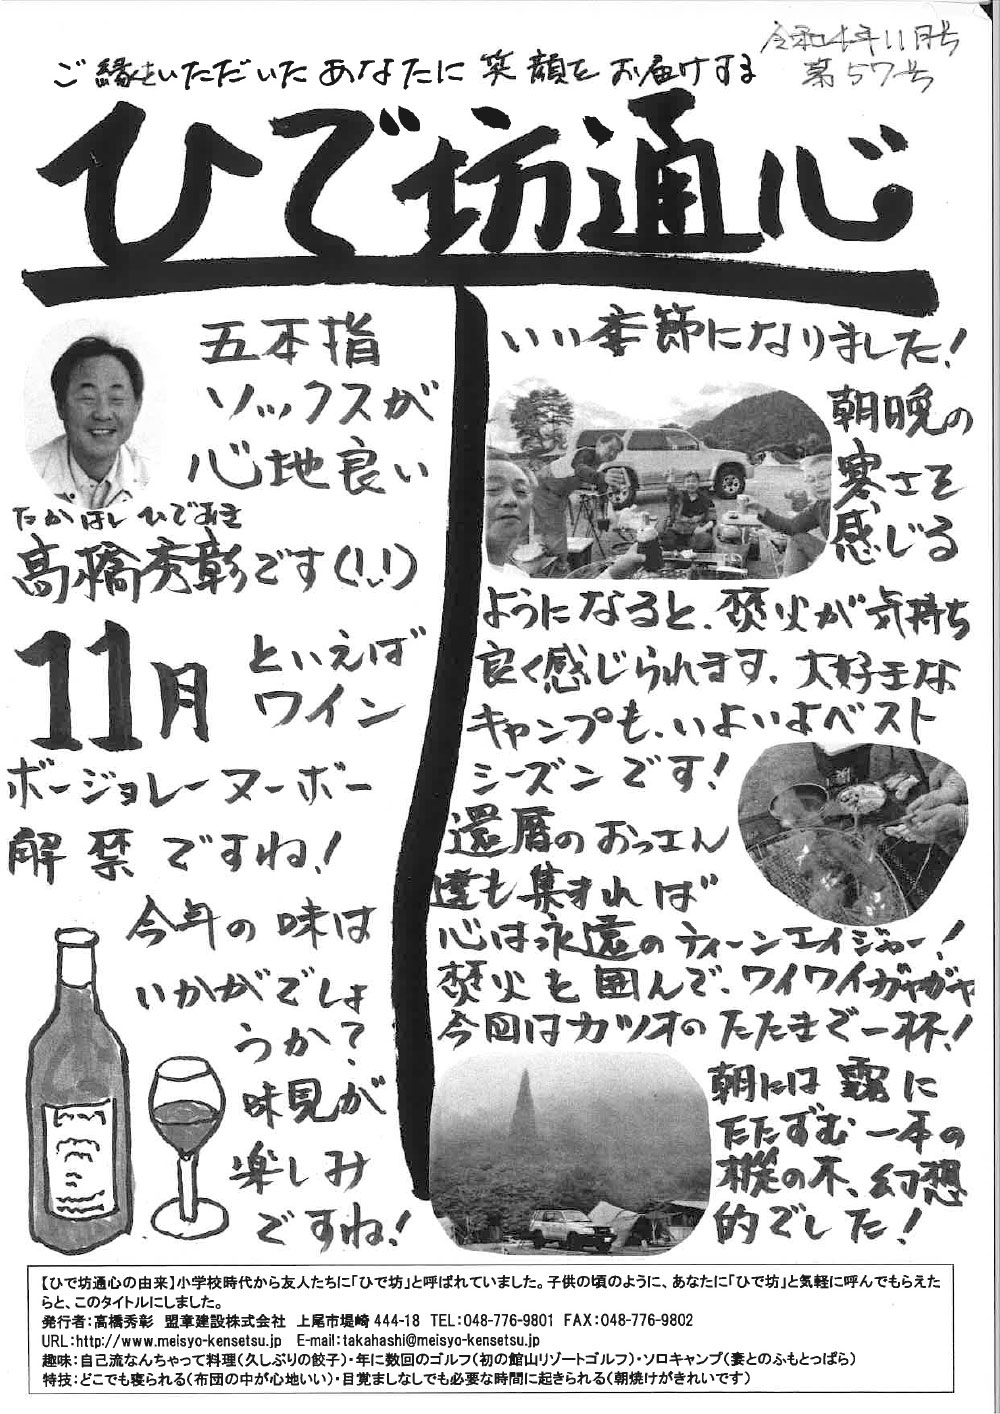 令和4年11月号
第57号
ご縁をいただいたあなたに笑顔をお届けする
ひで坊通心
五本指
ソックスが
心地良い
たかはし ひであき
高橋秀彰です(^.^)
11月
といえば
ワイン
ボージョレーヌーボー
解禁ですね!
今年の味は
いかがでしょ
うか?
味見が
楽しみ
ですね!
いい季節になりました!
朝晩の
寒さを
感じる
ようになると、焚火が気持ち
良く感じられます、大好きな
キャンプも、いよいよベスト
シーズンです!
還暦のおっさん
達も集まれば
心は永遠のティーンエイジャー!
焚火を囲んで、ワイワイガヤガヤ
今回はカツオのたたきで一杯!
朝には霧に
たたずむ一本の
樅の木、幻想
的でした!
【ひで坊通心の由来】小学校時代から友人たちに「ひで坊」と呼ばれていました。子供の頃のように、あなたに「ひで坊」と気軽に呼んでもらえた
らと、このタイトルにしました。
発行者:高橋秀彰 盟章建設株式会社 上尾市堤崎 444-18 TEL:048-776-9801 FAX:048-776-9802
URL:http://www.meisyo-kensetsu.jp E-mail:takahashi@meisyo-kensetsu.jp
趣味:自己流なんちゃって料理(久しぶりの餃子)・年に数回のゴルフ(初の館山リゾートゴルフ)・ソロキャンプ(妻とのふもとっぱら)
特技:どこでも寝られる(布団の中が心地いい)・目覚ましなしでも必要な時間に起きられる(朝焼けがきれいです)